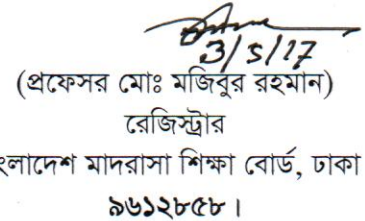 3/5/17
(প্রফেসর মোঃ মজিবুর রহমান)
রেজিস্ট্রার
মাদরাসা শিক্ষা বোর্ড, ঢাকা
৯৬১২৮৫৮।